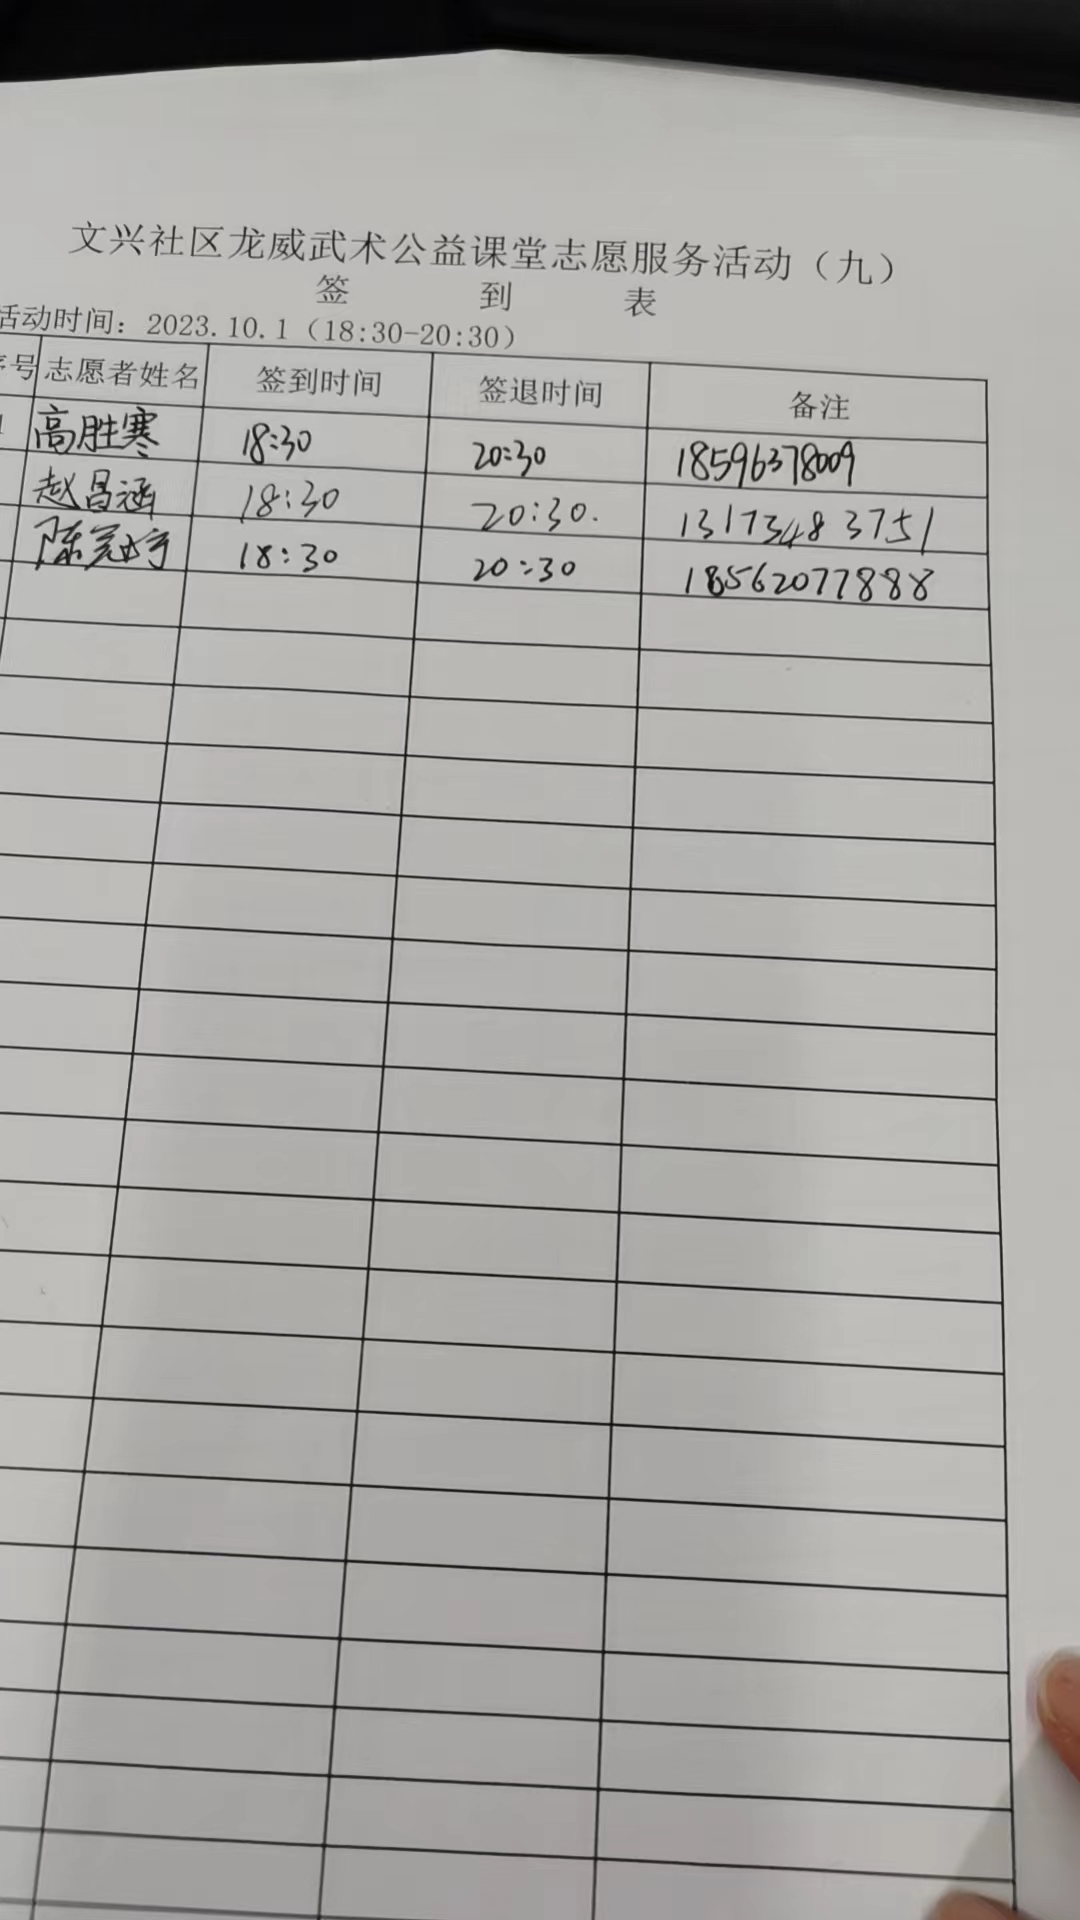 文兴社区龙威武术公益课堂志愿服务活动（九）
签 到 表
活动时间：2023.10.1（18:30-20:30）
序号 志愿者姓名 签到时间 签退时间 备注
1 高胜寒 18:30 20:30 18596378009
赵昌涵 18:30 20:30. 13173483751
陈冠宇 18:30 20:30 18562077888